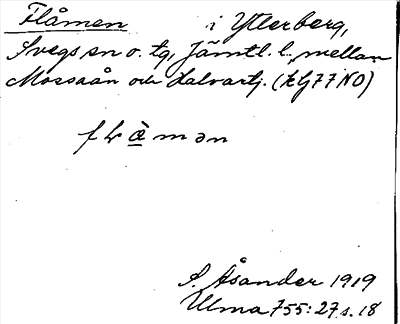 Flåmen i Ytterberg,
Svegs sn o. tg, Jämtl. l., mellan
Mossaån och Dalvartj. (kG77NO)
flå̀mən
S. Åsander 1919
Ulma 755:27 s. 18